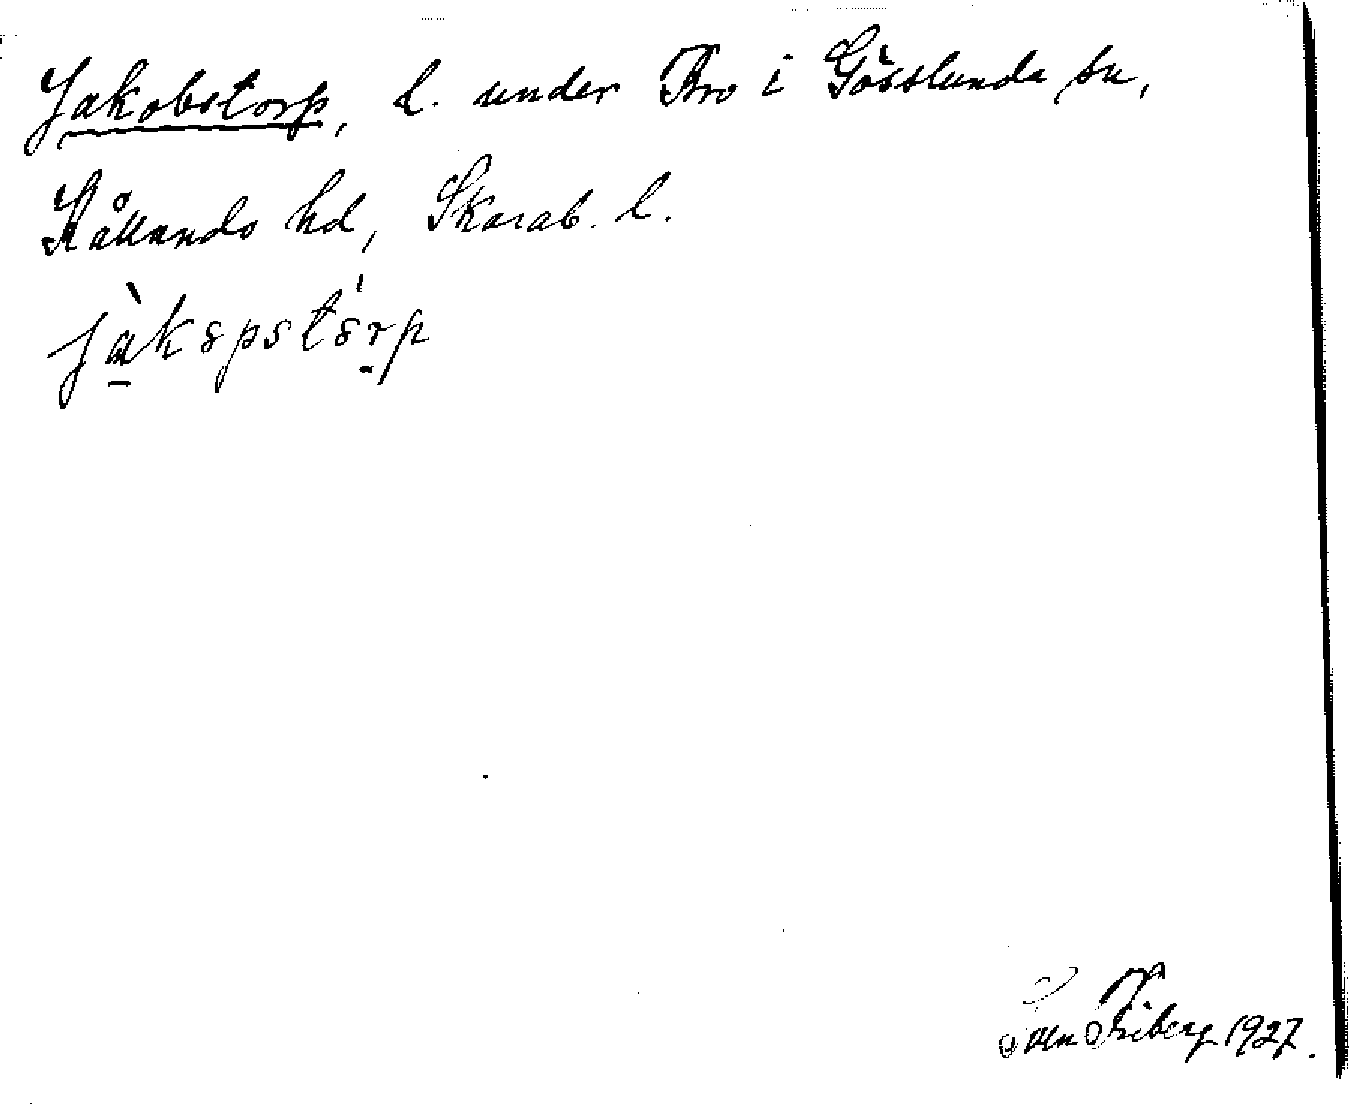 Jakobstorp, l. under Bro i Gösslunda sn,
Kållands hd, Skarab. l.
jàkɔpstɔ́rp
Sven Friberg 1927.